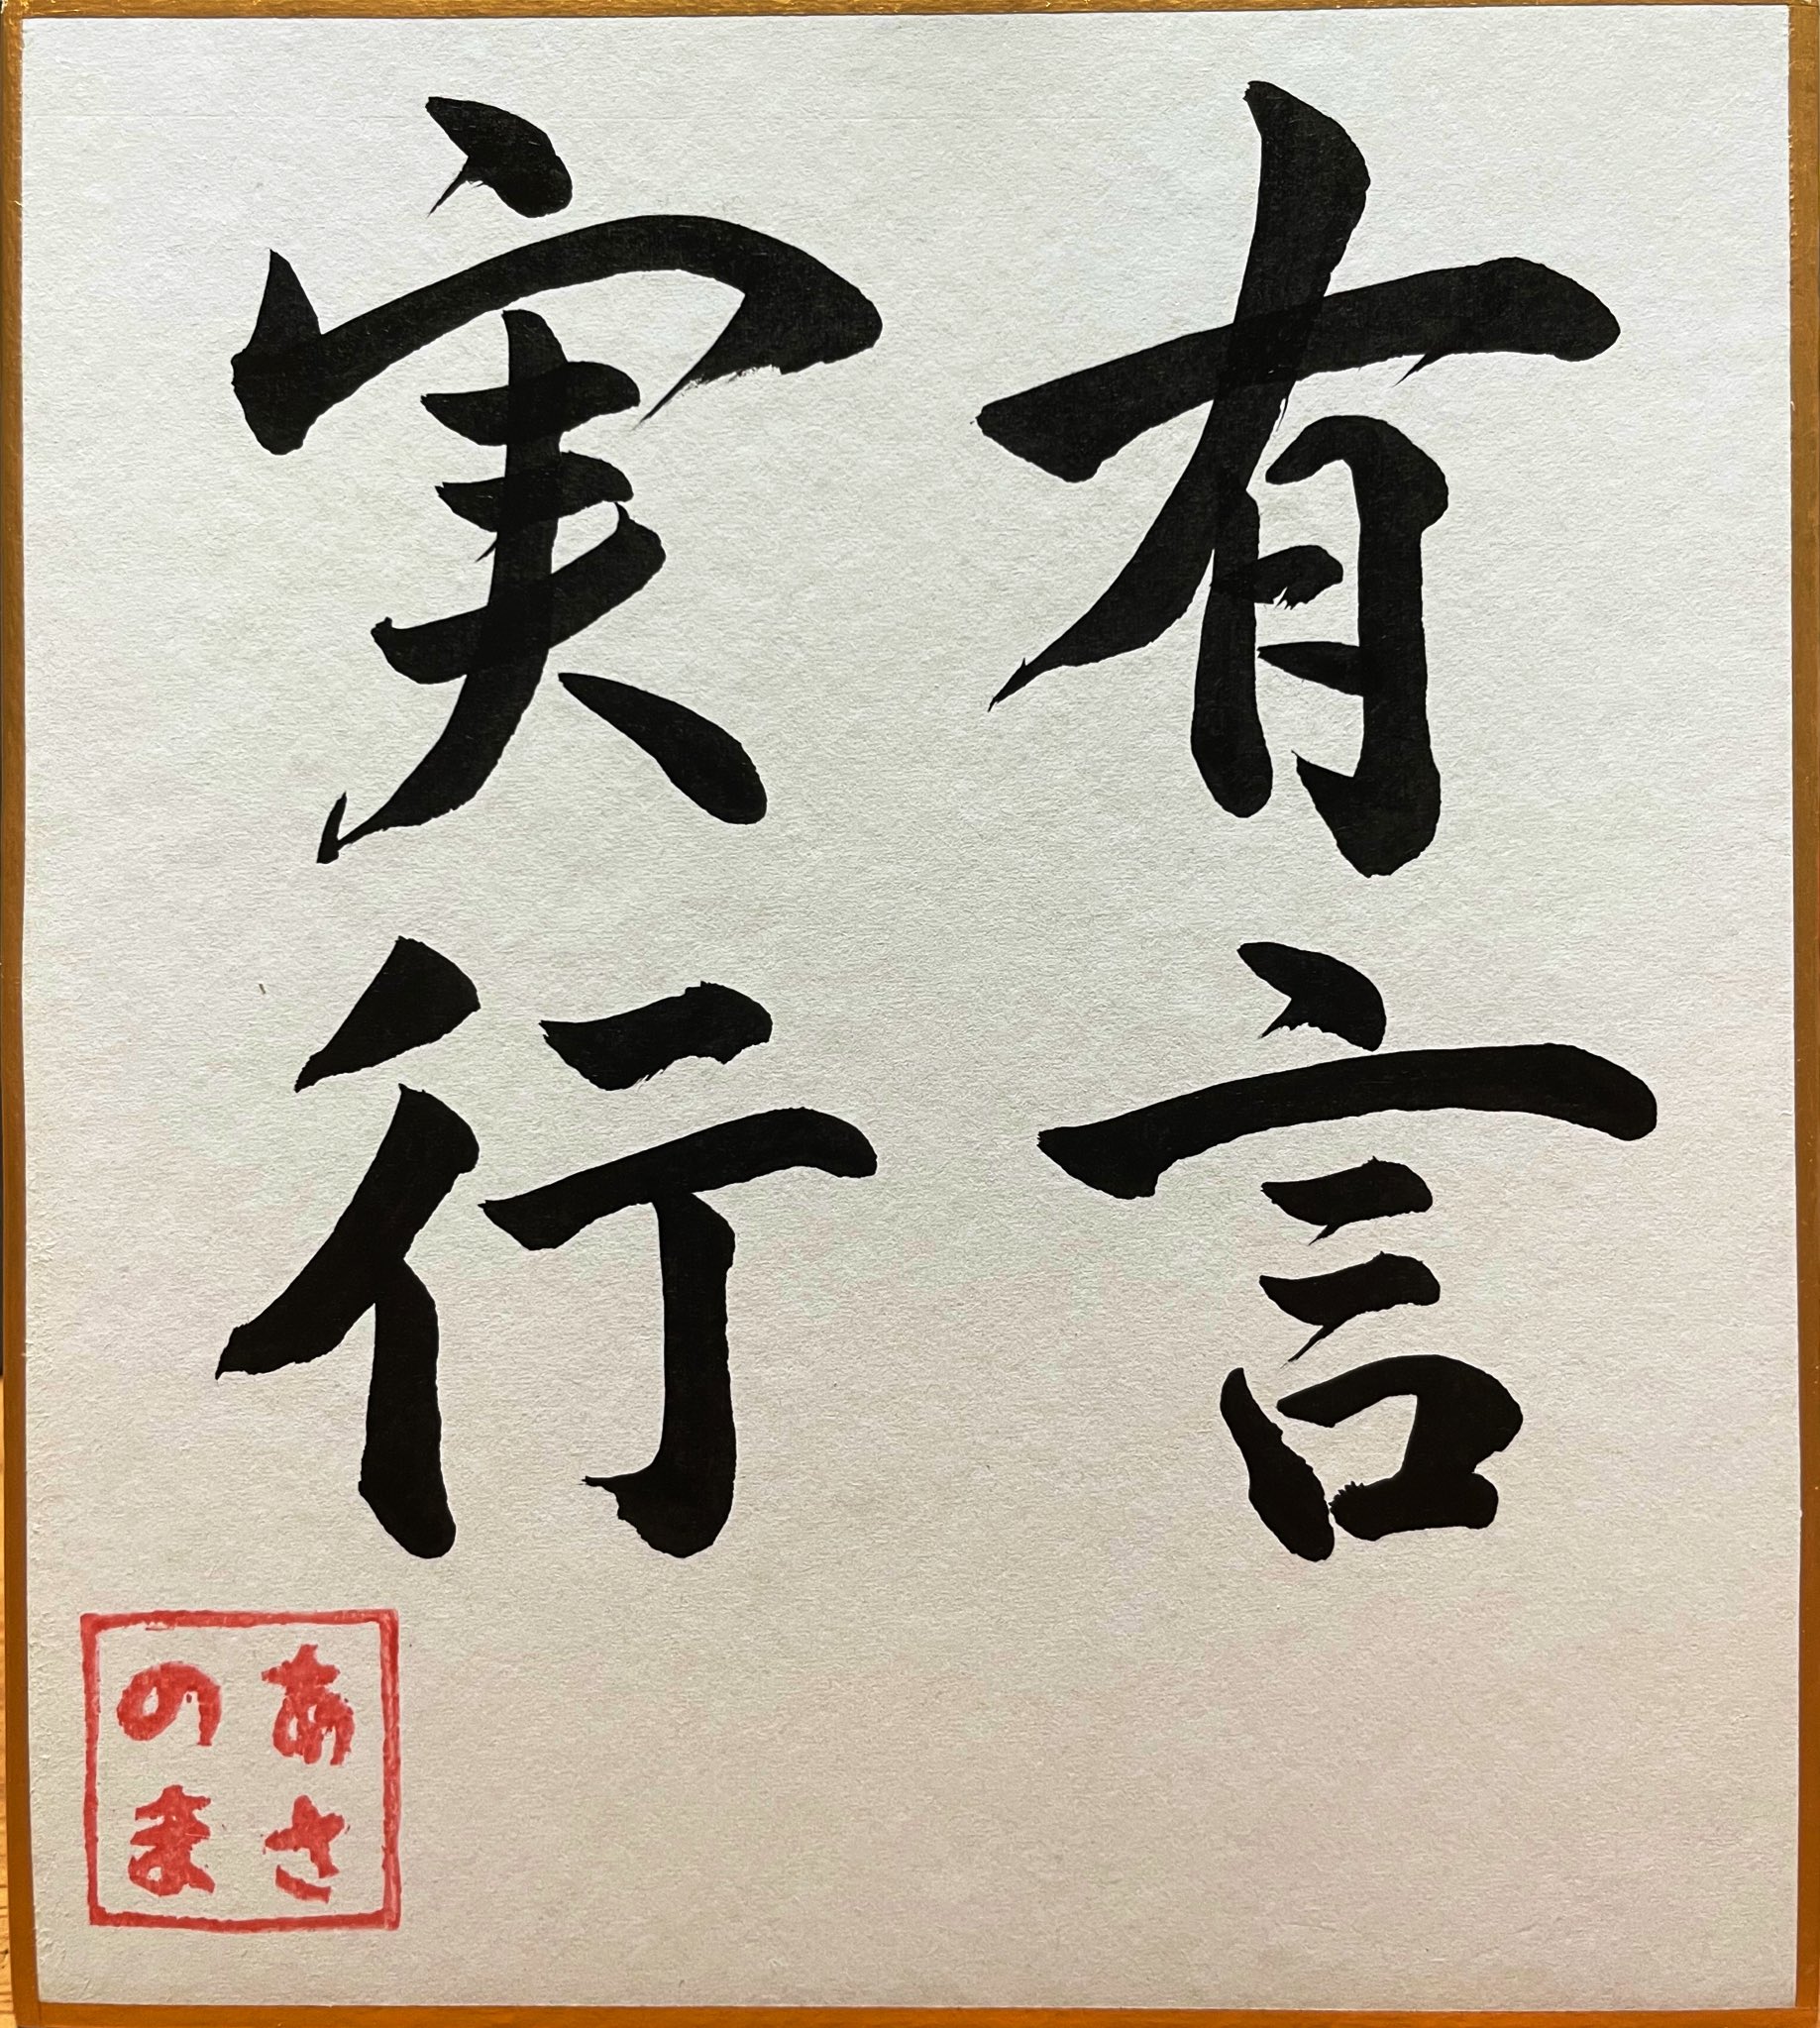 有言
実行
あさ
のま